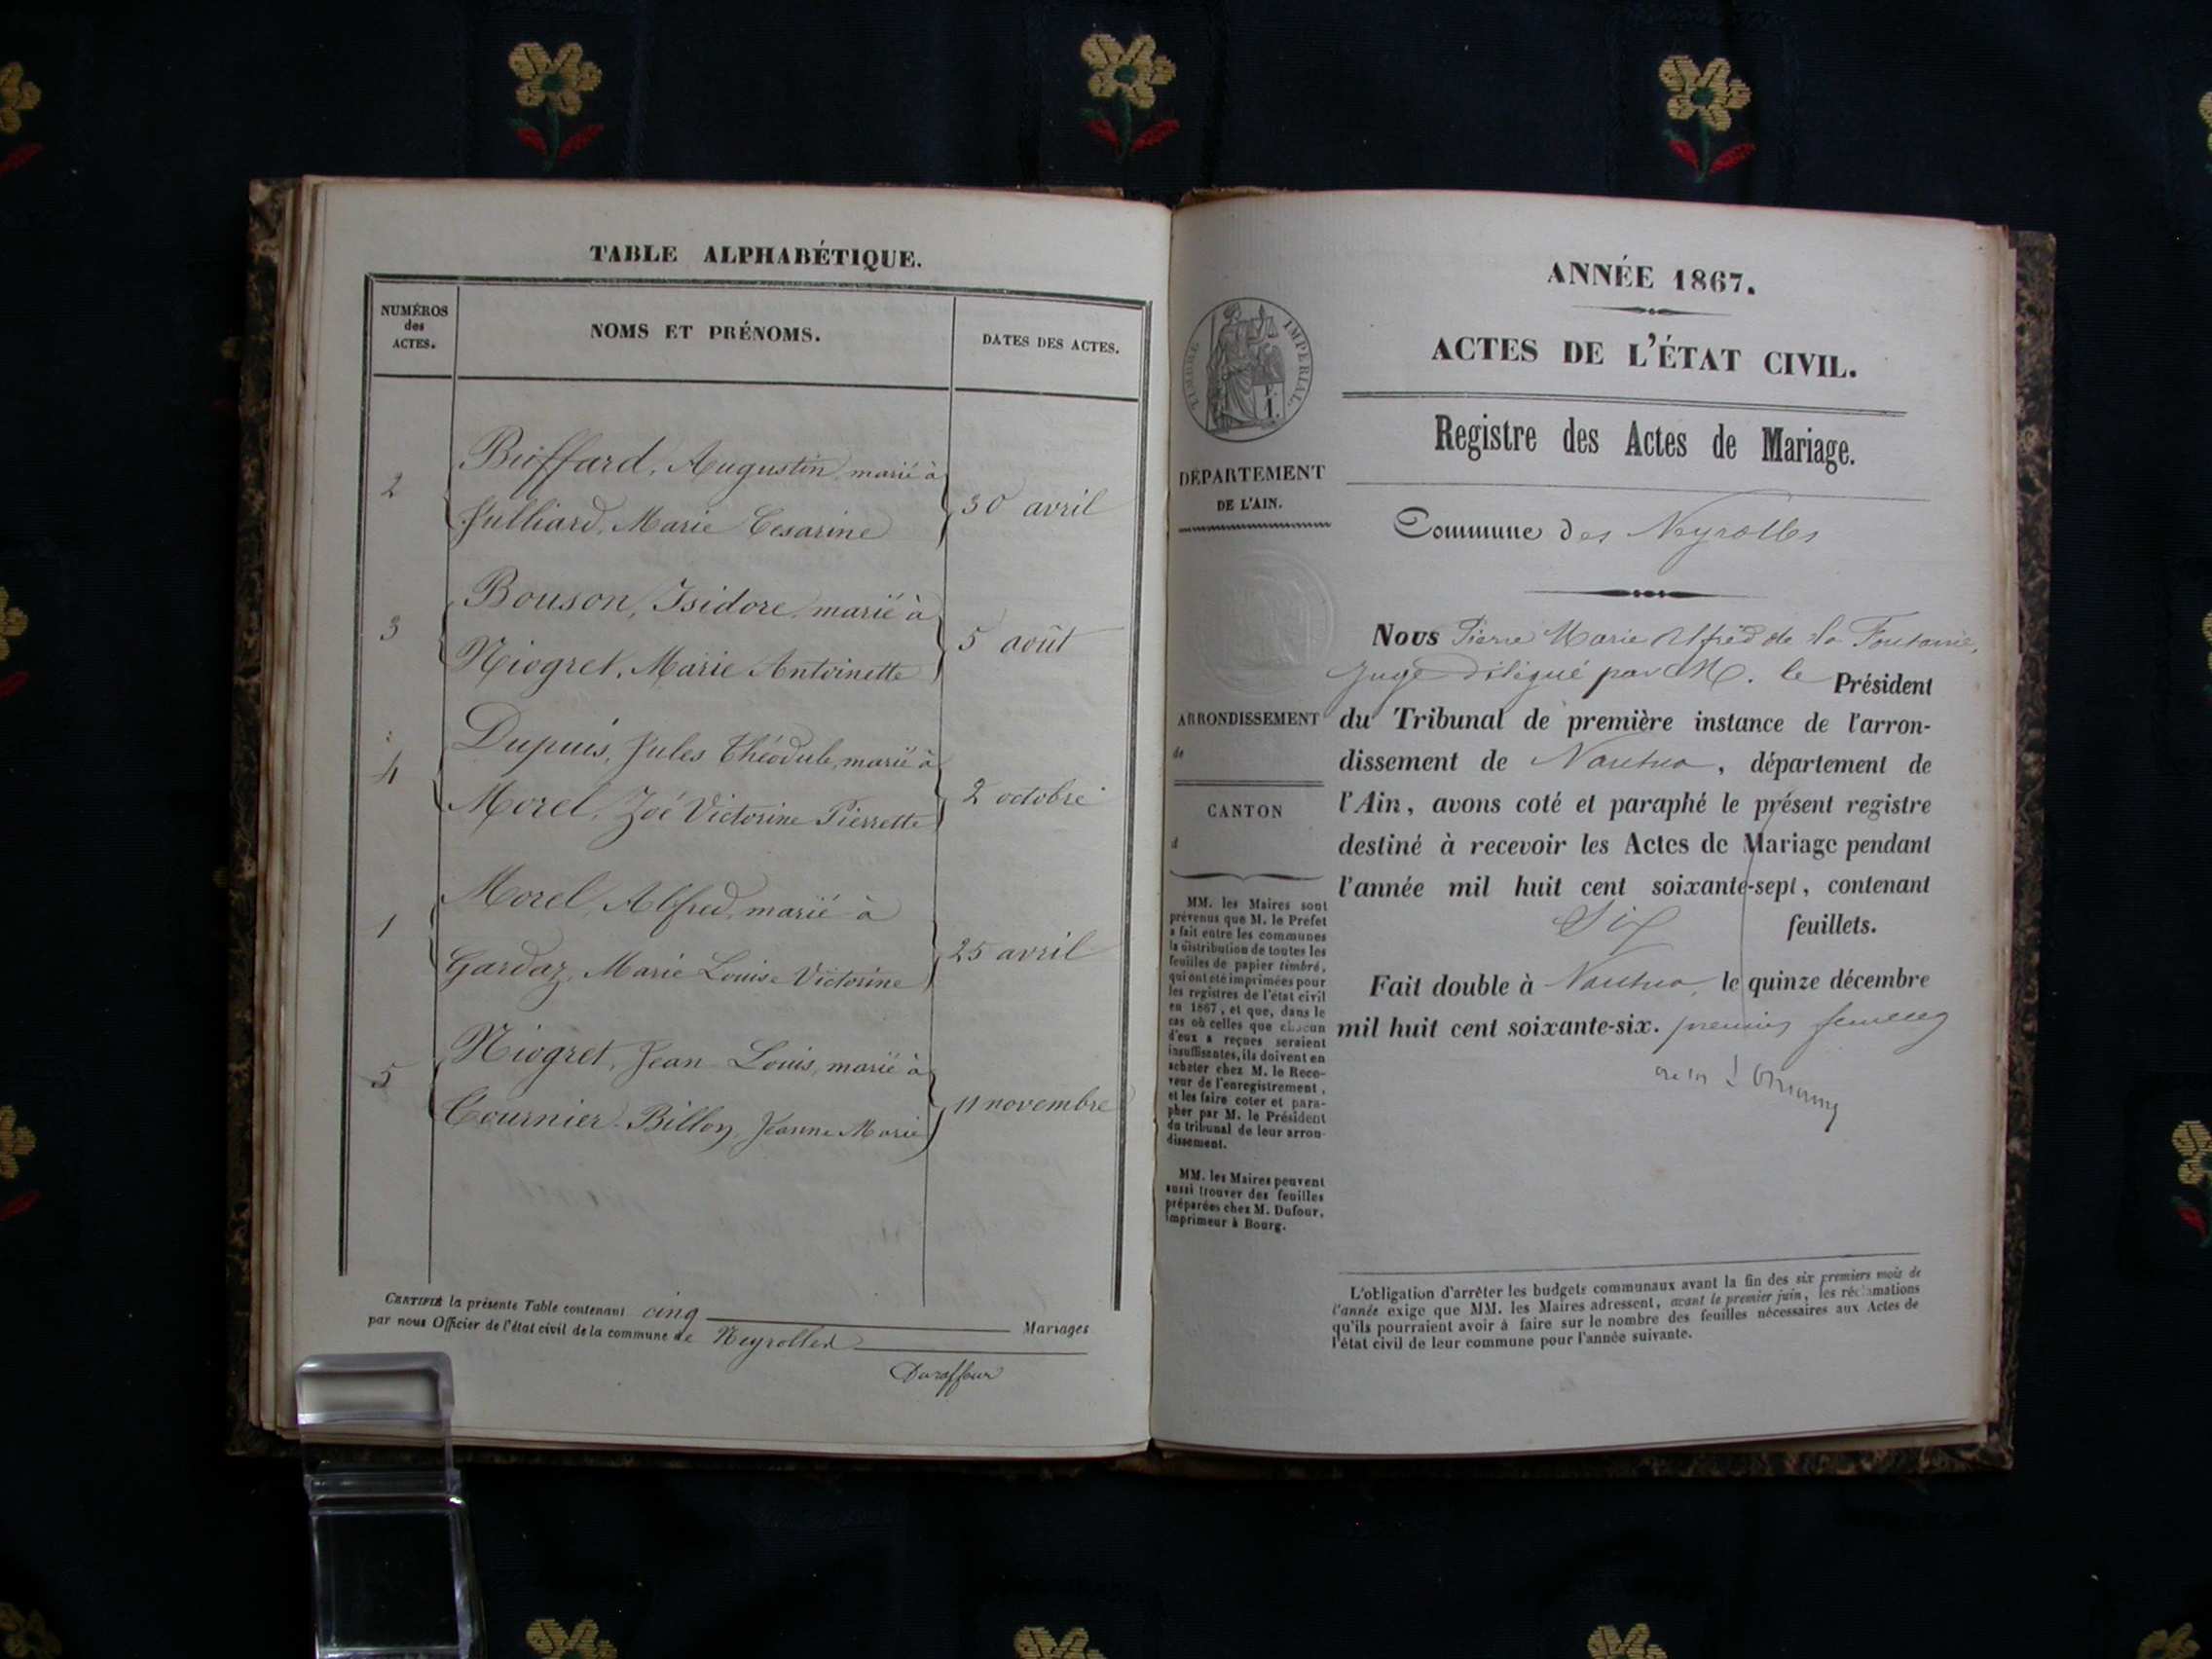 TABLE ALPHABÉTIQUE.
NUMÉROS
des
ACTES.
NOMS ET PRÉNOMS.
DATES DES ACTES.
Buffard, Augustin, marié à
2
30 avril
Julliard, Marie Cesarine
Bouson, Isidore, marié à
3
5 août
Niogret, Marie Antoinette
Dupuis, Jules Théodule, marié à
4
2 octobre
Morel, Zoé Victorine Pierrette
Morel, Alfred, marié à
1
25 avril
Gardaz, Marie Louise Victorine
Niogret, Jean Louis, marié à
5
11 novembre
Cournier-Billon, Jeanne Marie
CERTIFIÉ la présente Table contenant cinq Mariages
par nous Officier de l'état civil de la commune de Neyrolles
Duraffour
ANNÉE 1867.
ACTES DE L'ÉTAT CIVIL.
Registre des Actes de Mariage.
Commune des Neyrolles
TIMBRE IMPERIAL
1
DÉPARTEMENT
DE L'AIN.
ARRONDISSEMENT
de
CANTON
d
MM. les Maires sont
prévenus que M. le Préfet
a fait entre les communes
la distribution de toutes les
feuilles de papier timbré,
qui ont été imprimées pour
les registres de l'état civil
en 1867, et que, dans le
cas où celles que chacun
d'eux a reçues seraient
insuffisantes, ils doivent en
acheter chez M. le Rece-
veur de l'enregistrement,
et les faire coter et para-
pher par M. le Président
du tribunal de leur arron-
dissement.
MM. les Maires peuvent
aussi trouver des feuilles
préparées chez M. Dufour,
imprimeur à Bourg.
Nous Pierre Marie Alfred de la Fontaine,
Juge délégué par M. le Président
du Tribunal de première instance de l'arron-
dissement de Nantua, département de
l'Ain, avons coté et paraphé le présent registre
destiné à recevoir les Actes de Mariage pendant
l'année mil huit cent soixante-sept, contenant
Six feuillets.
Fait double à Nantua, le quinze décembre
mil huit cent soixante-six. premier feuillet
L'obligation d'arrêter les budgets communaux avant la fin des six premiers mois de
l'année exige que MM. les Maires adressent, avant le premier juin, les réclamations
qu'ils pourraient avoir à faire sur le nombre des feuilles nécessaires aux Actes de
l'état civil de leur commune pour l'année suivante.